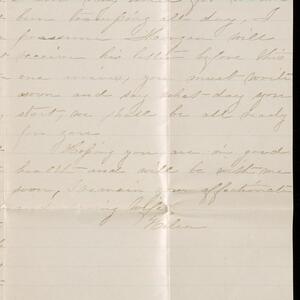 him tramping all day, I
presume Morgan will
receive his letter before this
one arrives, you must write
soon and say what day you
start, we shall be all ready
for you
Hoping you are in good
health and will be with me
soon, I remain your affectionate
and loving Wife
Helen